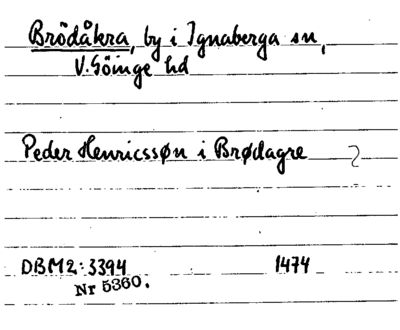 Brödåkra, by i Ignaberga sn,
V. Göinge hd
Peder Henricssøn i Brødagre
DBM2:3394 1474
Nr 5360.